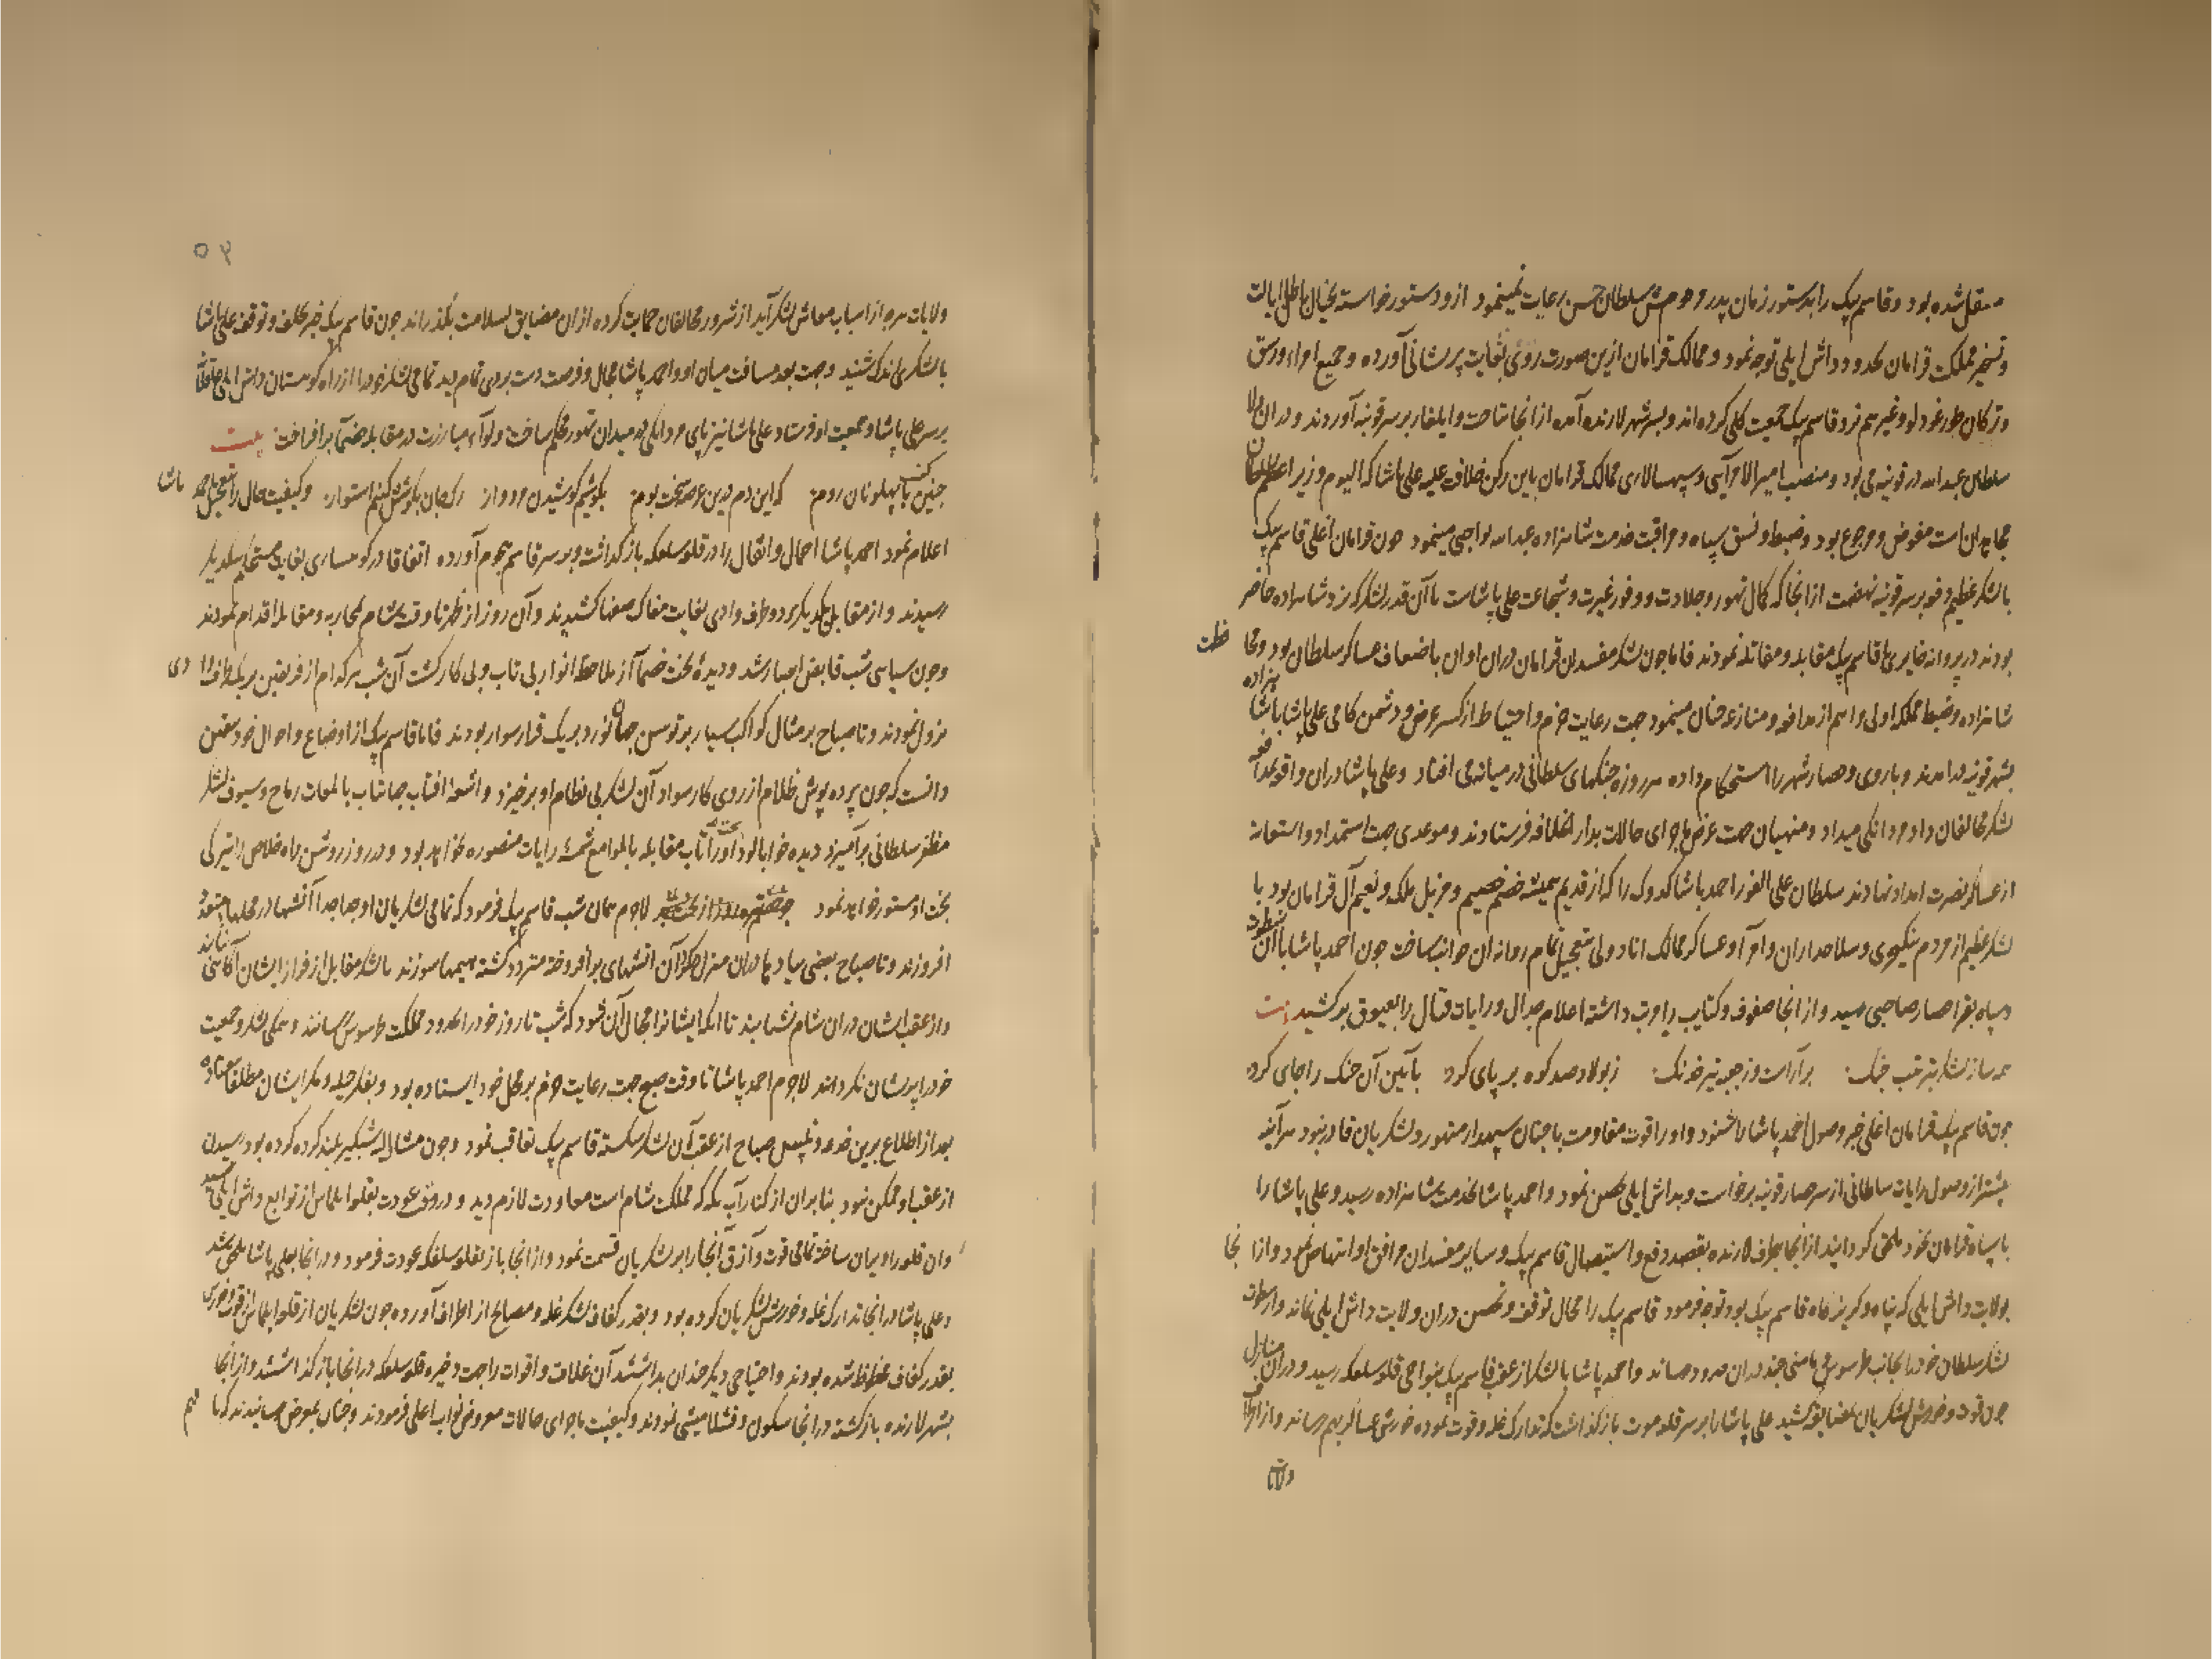 منتقل شده بود و قاسم بیک را بدستور زمان پدر و عم سلطان حسن رعایت نمینمود ازو دستور خواسته بخیال باطل ایالت
و تسخیر مملکت قرامان بحدود داش ایلی توجه نمود و ممالک قرامان ازین صورت روی بغایت پریشانی آورده و جمیع امراء ورسق
و ترکان طورغودلو و غیر هم نزد قاسم بیک جمعیت کلی کرده اند و بسر شهر لارنده آمده از انجا تاخت و ایلغار بر سر قونیه آوردند و دران ولا
سلطان عبد الله در قونیه می بود و منصب امیر الامرآیی و سپهسالاری ممالک قرامان باین رکن خلافت علیه علی پاشا که الیوم وزیر اعظم سلطان
مجاهدان است مفوض و مرجوع بود و ضبط و نسق سپاه و مراقبت خدمت شاهزاده عبد الله بواجبی مینمود چون قرامان اغلی قاسم بیک
با لشکر عظیم و فر بر سر قونیه نهضت از انجا که کمال تهور و جلادت و وفور غیرت و شجاعت علی پاشاست با آن قدر لشکر که نزد شاهزاده حاضر
بودند در پروانه با قاسم بیک مقابله و مقاتله نمودند فاما چون لشکر مفسدان قرامان دران اوان باضعاف عساکر سلطان بود و محافظت
شاهزاده و ضبط مملکه اولی و اهم از مدافعه و منازعه چنان مینمود جهت رعایت حزم و احتیاط از کسر عرض و دشمن کامی علی پاشا با شاهزاده
بشهر قونیه درامدند و باروی و حصار شهر را استحکام داده هر روزه جنگهای سلطانی در میانه می افتاد و علی پاشا دران واقعه مدافعه
لشکر مخالفان داد مردانکی میداد و منهیان جهت عرض ماجرای حالات بدار الخلافه فرستادند و موعدی جهت استمداد و استعانه
از عساکر نصرت امداد نهادند سلطان علی الفور احمد پاشا کدوک را که از قدیم همیشه خصم صمیم و مزیل ملک و نعیم آل قرامان بود با
لشکر عظیم از مردم ینکچری و سلاحداران و امرآ و عساکر ممالک اناد ولی بتعجیل تمام روانه آن جوانب ساخت چون احمد پاشا با آن سطوت
و سپاه بقرا حصار صاحبی رسید و از انجا صفوف و کتایب را مرتب داشته اعلام جدال و رایات قتال را بعیوق برکشید بیت
همه ساز لشکر بترتیب جنک برآراست وز جعبه تیر خدنک ز پولاد صد کوه بر پای کرد بآیین آن جنک را جای کرد
چون قاسم بیک قرامان اغلی خبر وصول احمد پاشا را شنود و او را قوت مقاومت با چنان سپهدار متهور و لشکریان قادر نبود هر آینه
پیشتر از وصول رایات سلطانی از سر حصار قونیه برخاست و بداش ایلی تحصن نمود و احمد پاشا بخدمت شاهزاده رسید و علی پاشا را
با سپاه قرامان بخود ملحق کردانید از انجا بطرف لارنده بقصد دفع و استیصال قاسم بیک و سایر مفسدان موافق او انتهاض نمود و از انجا
بولایت داش ایلی که پناه و کریزگاه قاسم بیک بود توجه فرمود قاسم بیک را مجال توقف و تحصن دران ولایت داش ایلی نماند و از سطوت
لشکر سلطان خود را بجانب طرسوس بامنی چند دران حدود رساند و احمد پاشا با لشکر از عقب قاسم بیک بنواحی قلعه سلفکه رسید و دران منازل
چون قوت و خورش لشکریان بمضایق کشید علی پاشا را بر سر قلعه موت بازگذاشت که تدارک غله و قوت نموده خورش عساکر بهم رساند و از اطراف
ولایات
۵۴
ولایات هرچه از اسباب معاش لشکر آید از شرور مخالفان حمایت کرده ازان مضایق بسلامت بگذراند چون قاسم بیک خبر تخلف و توقف علی پاشا
با لشکر اندک شنید و جهت بعد مسافت میان او و احمد پاشا مجال و فرصت دست بردی تمام دید تمامی لشکر خود را از راه کوهستان داش ایلی
بر سر علی پاشا و جمعیت او فرستاد و علی پاشا نیز پای مردانکی در میدان تهور محکم ساخت و لوآء مبارزت در مقابله خصمآ برافراخت بیت
چنین گفت با پهلوانان روم که این دم درین عرصه سخت بوم بکوشیم کوشیدن مردوار رک جان بکوشش کنیم استوار و کیفیت حال را بتعجیل باحمد پاشا
اعلام نمود احمد پاشا احمال و اثقال را در قلعه سلفکه بازگذاشت و بر سر قاسم هجوم آورده اتفاقا در کوهساری بغایت مستحکم بیکدیگر
رسیدند و از مقابل یکدیگر در دو طرف وادی بغایت مغاک صفها کشیدند و آن روز از ظهر تا وقت شام بمحاربه و مقابله اقدام نمودند
و چون سیاهی شب قابض ابصار شد و دیده بخت خصمآ از ملاحظه انوار بی تاب و بی کار گشت آن شب هر کدام از فریقین بر یکطرف وادی
نزول نمودند و تا صباح بر مثال کواکب سیار بر توسن جهان نورد بر یک قرار سوار بودند فاما قاسم بیک از اوضاع و احوال خود بیقین
دانست که چون پرده پوش ظلام از روی کار سواد آن لشکر بی نظام او برخیزد و اشعه آفتاب جهانتاب با لمعات رماح و سیوف لشکر
مظفر سلطانی برآمیزد دیده خواب آلود بخت او را تاب مقابله با لوامع شمشه رایات منصوره نخواهد بود و در روز روشن راه خلاص را تیرکی
بخت او مستور خواهد نمود لاجرم همان شب قاسم بیک فرمود که تمامی لشکریان او جابجا آتشها در محلها متعدد
افروزند و تا صباح بعضی پیادها دران منزل آن آتشهای برافروخته متردد کشته هیمها سوزند تا لشکر مقابل از فرار ایشان آگاهی نیابند
و از عقب ایشان دران شام نشتابند تا انکه ایشانرا مجال آن شود که شب تا روز خود را بحدود مملکت طرسوس رسانند و همکی لشکر و جمعیت
خود را پریشان نکردانند لاجرم احمد پاشا تا وقت صبح جهت رعایت حزم بر محل خود ایستاده بود و بفکر حیله و مکر ایشان مطلقا نیفتاده
بعد از اطلاع برین خدعه و تلبیس صباح از عقب آن لشکر شکسته قاسم بیک تعاقب نمود و چون مشار الیه شبگیر بلند کرده بود رسیدن
از عقب او ممکن نبود بنا بران از کنار آب که مملکت شام است معاودت لازم دید و در وقت عودت بقلعه ایلماس از توابع داش ایلی رسید
و آن قلعه را ویران ساخته تمامی قوت و آزوق آنجا را بر لشکریان قسمت نمود و از انجا باز بقلعه سلفکه عودت فرمود و در انجا بعلی پاشا ملحق شد
و علی پاشا در انجا تدارک غله و خورش لشکریان کرده بود و بقدر کفاف لشکر غله و مصالح از اطراف آورده چون لشکریان از قلعه ایلماس از قوت و خورش
بقدر کفاف محظوظ شده بودند و احتیاجی دیگر چندان نداشتند آن غلات و اقوات را جهت ذخیره قلعه سلفکه در انجا بازگذاشتند و از انجا
بشهر لارنده بازگشته در انجا سکون و قشلامیشی نمودند و کیفیت ماجرای حالات معروض نواب اعلی فرمودند و چنان بعرض رسانیدند که تا مهم